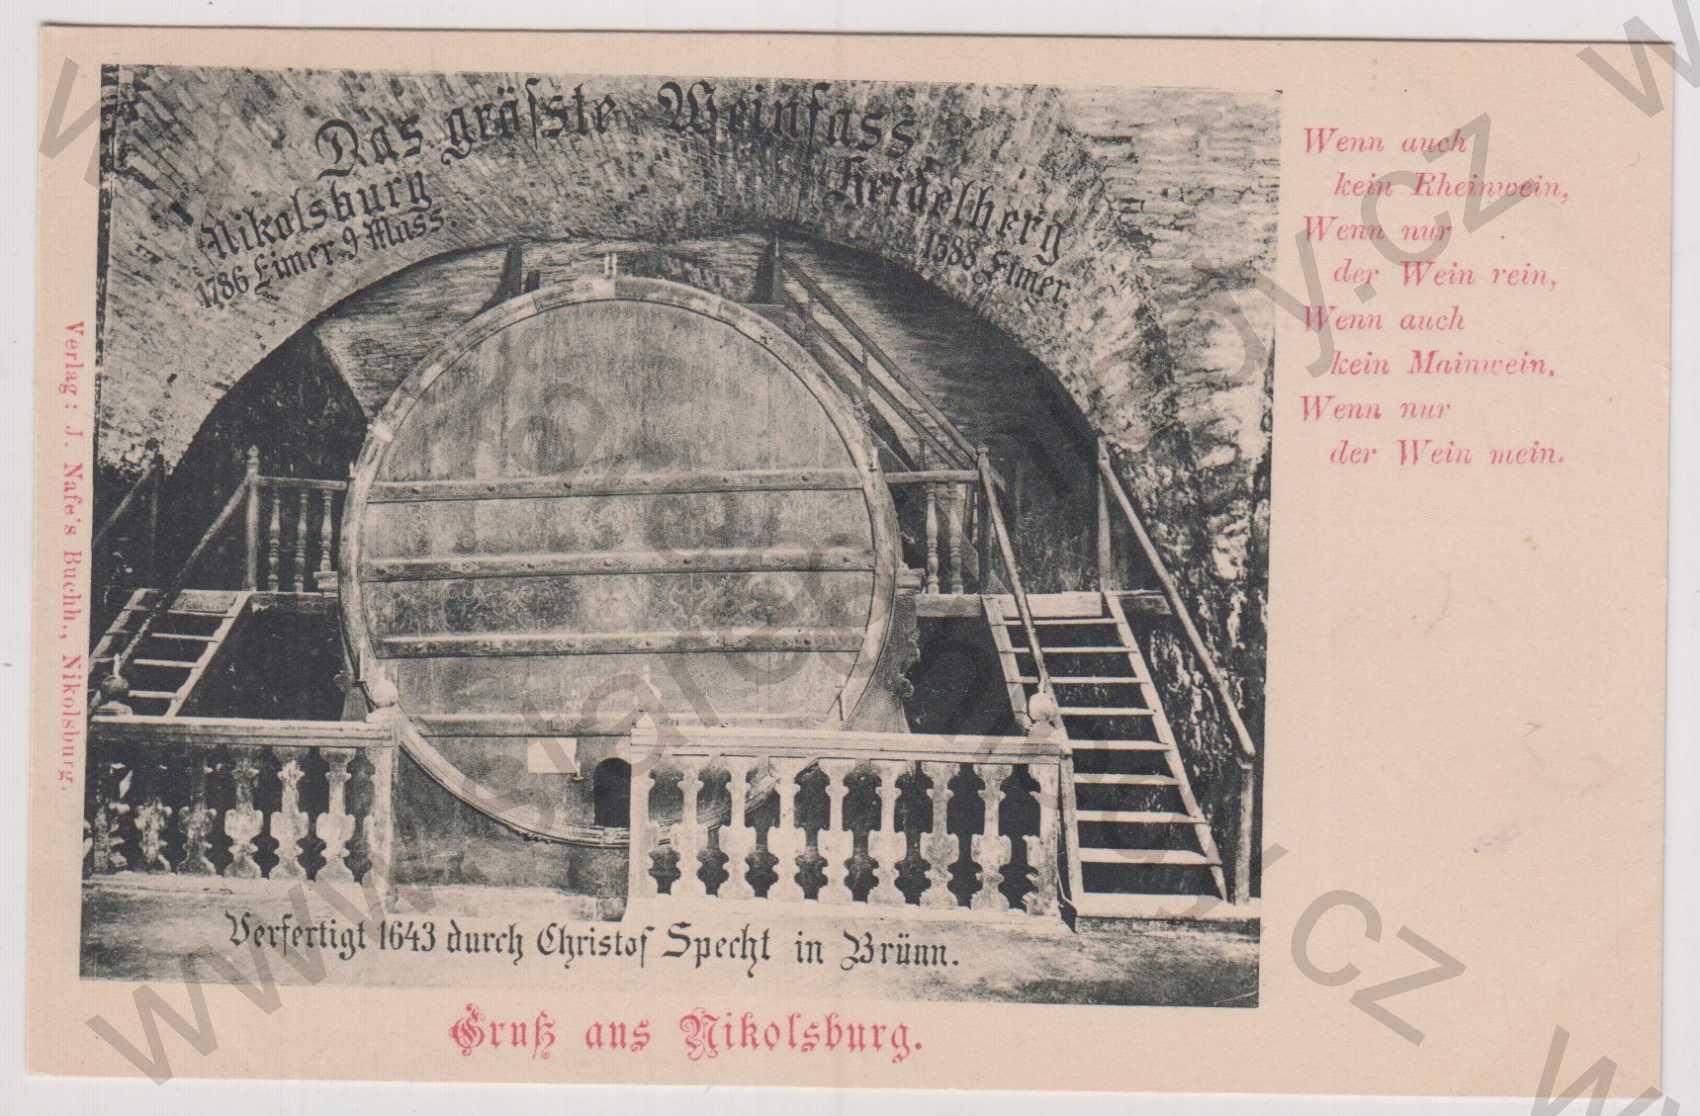 Das gröſste Weinfass.
Nikolsburg
1786 Eimer 9 Mass.
Heidelberg
1388 Eimer.
Verfertigt 1643 durch Christof Specht in Brünn.
Gruß aus Nikolsburg.
Verlag: J. Nafe's Buchh., Nikolsburg.
Wenn auch
kein Rheinwein,
Wenn nur
der Wein rein,
Wenn auch
kein Mainwein,
Wenn nur
der Wein mein.